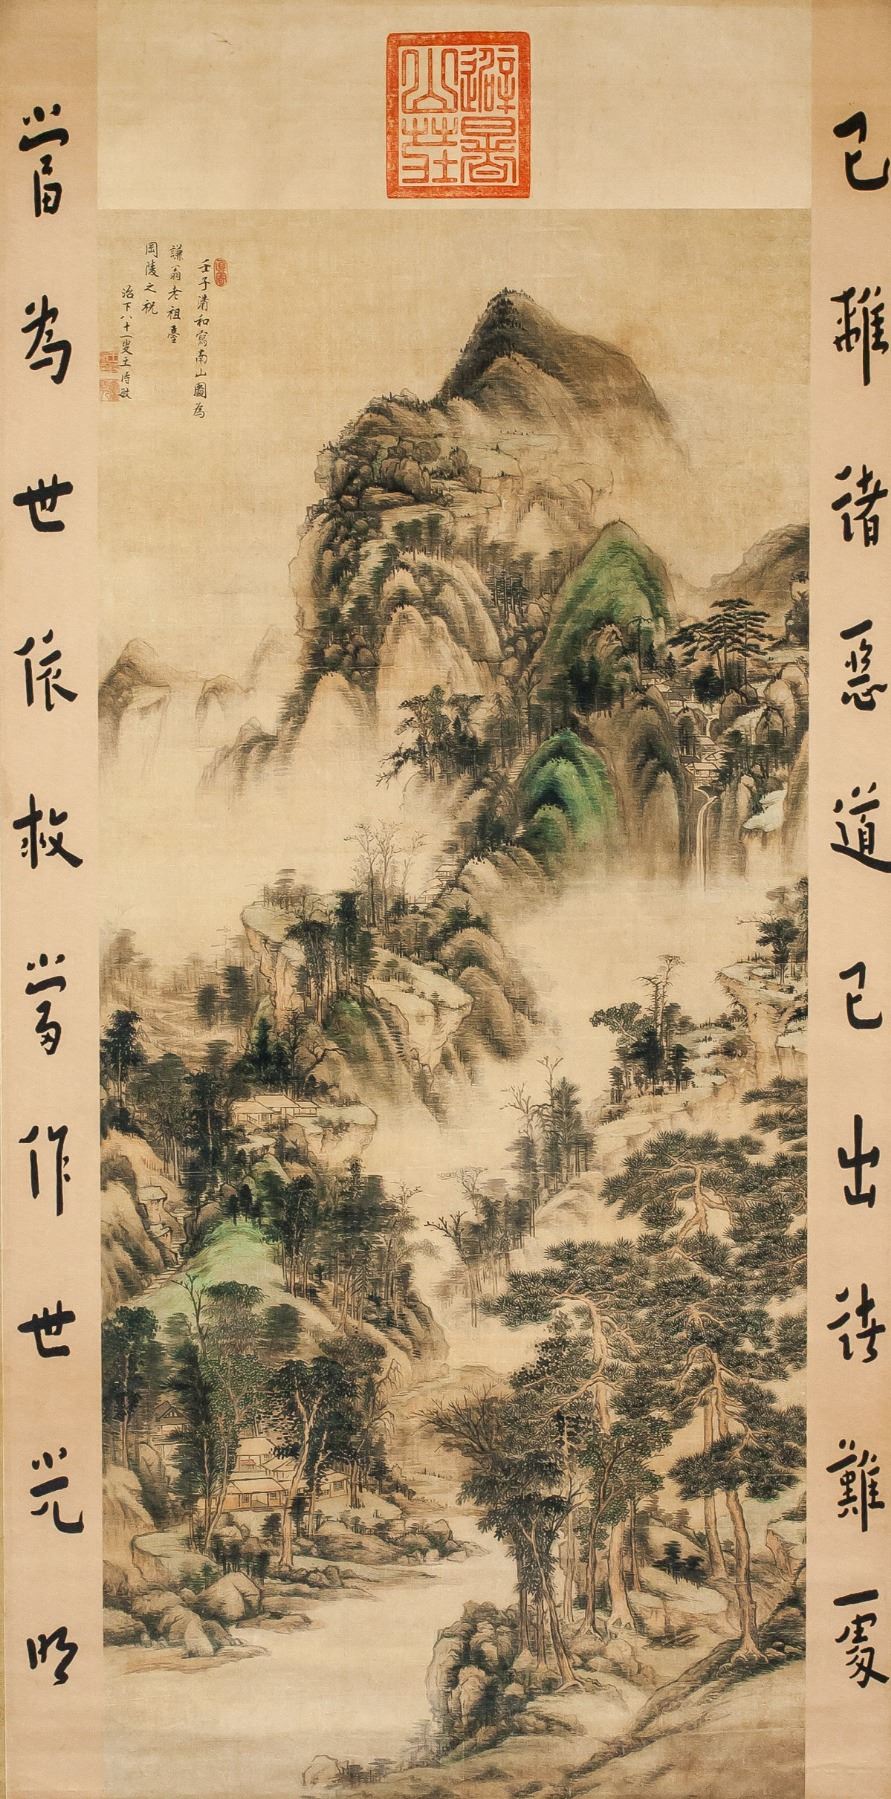 避暑
山莊
已離諸惡道已出諸難處
壬子清和寫南山圖為
謙翁老祖臺
岡陵之祝
治下八十一叟王時敏
當為世依救當作世光明